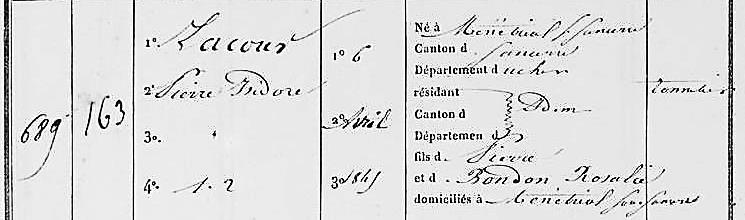 689
163
1° Lacour
2° Pierre Isidore
3o. "
4°. 1. 2
1° 6
2° Avril
3° 1845
Né à Menétréol s. Sancerre
Canton d Sancerre
Département du Cher
résidant
Canton d Idem
Départemen d
fils d. Pierre
et d Bondon Rosalie
domiciliés à Menétréol sous Sancerre
tonnelier